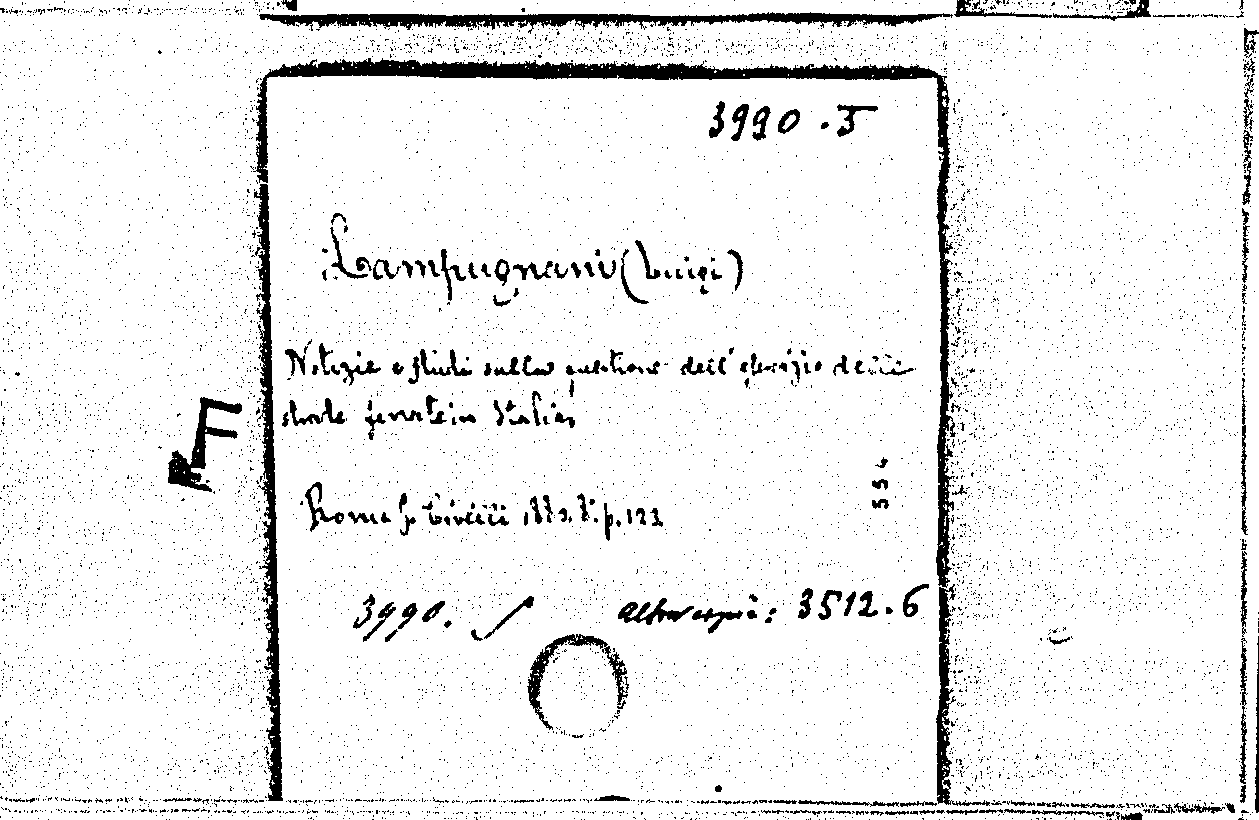 3990.5
Lampugnani (Luigi)
Notizie e studi sulla questione dell'esercizio delle
strade ferrate in Italia
F
554
Roma Civelli 1882. 8.º p. 122
3990. 5 altra copia: 3512.6